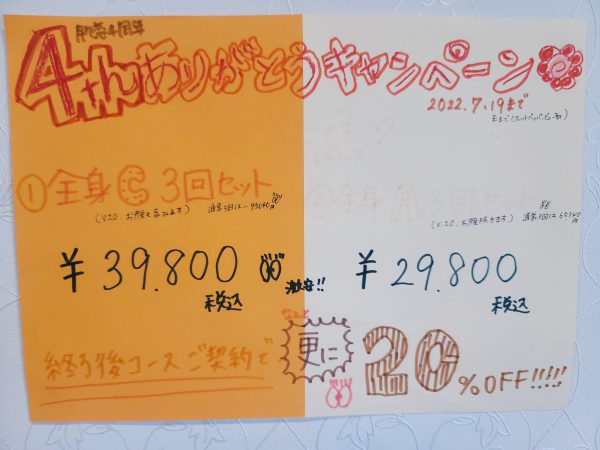 4周年ありがとうキャンペーン
2022.7.19まで
①全身 3回セット
(V.I.O、お顔も含みます) 通常3回は…95040円
②全身 3回セット
(V.I.O、お顔除きます) 通常3回は65340円
¥39.800 税込 激安!!
¥29.800 税込
終了後コースご契約で
なんと
更に
20%OFF!!!!!